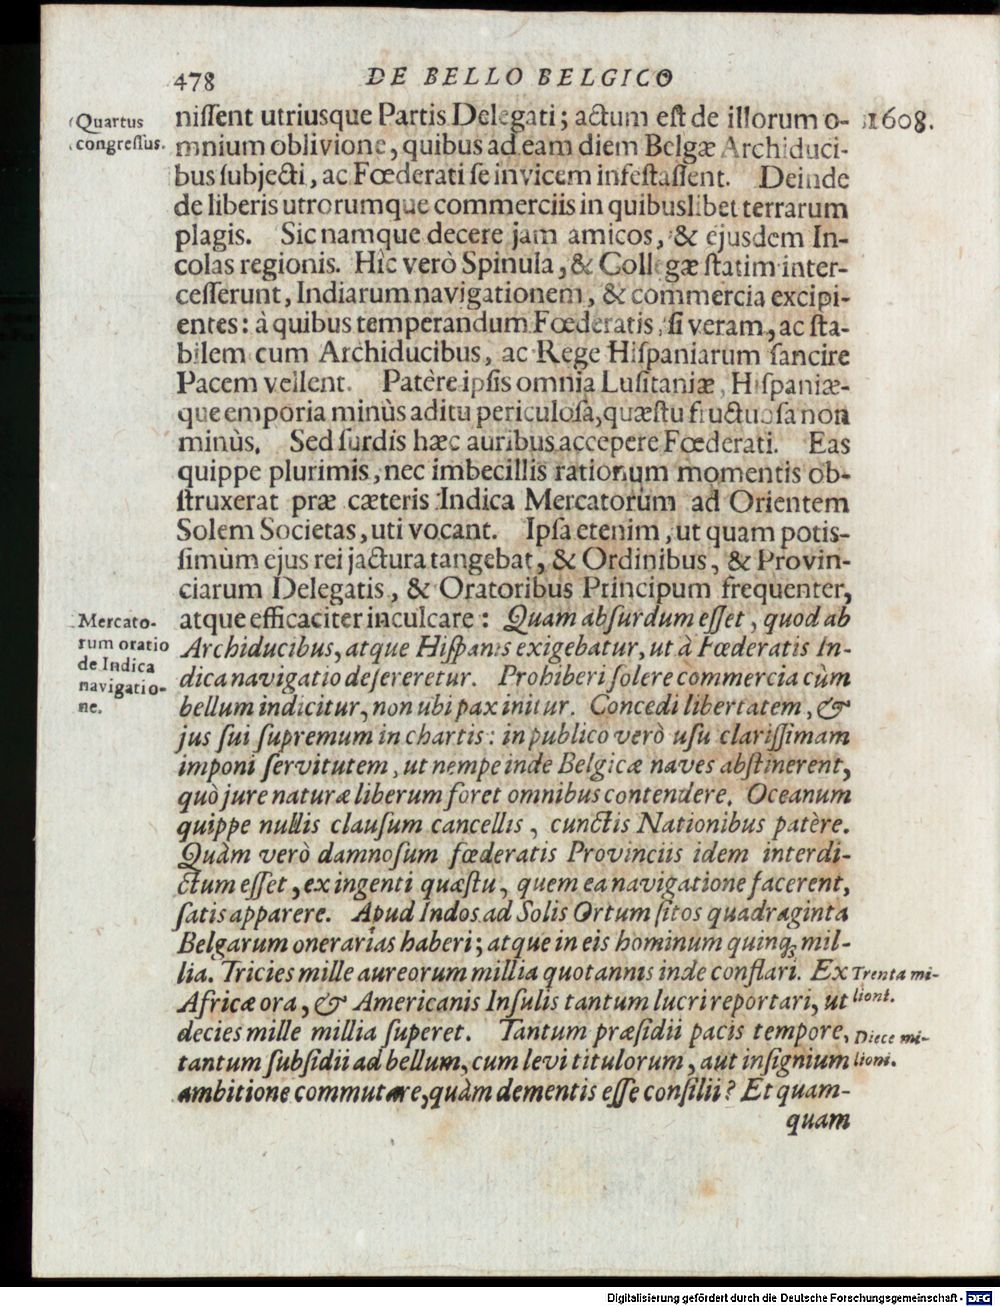 478 DE BELLO BELGICO
Quartus
congreſſus.
1608.
niſſent utriusque Partis Delegati; actum eſt de illorum o-
mnium oblivione, quibus ad eam diem Belgæ Archiduci-
bus ſubjecti, ac Fœderati ſe invicem infeſtaſſent. Deinde
de liberis utrorumque commerciis in quibuslibet terrarum
plagis. Sic namque decere jam amicos, & ejusdem In-
colas regionis. Hîc verò Spinula, & Collegæ ſtatim inter-
ceſſerunt, Indiarum navigationem, & commercia excipi-
entes: à quibus temperandum Fœderatis, ſi veram, ac ſta-
bilem cum Archiducibus, ac Rege Hiſpaniarum ſancire
Pacem vellent. Patère ipſis omnia Luſitaniæ, Hiſpaniæ-
que emporia minùs aditu periculoſa, quæſtu fructuoſa non
minùs. Sed ſurdis hæc auribus accepere Fœderati. Eas
quippe plurimis, nec imbecillis rationum momentis ob-
ſtruxerat præ cæteris Indica Mercatorum ad Orientem
Solem Societas, uti vocant. Ipſa etenim, ut quam potis-
ſimùm ejus rei jactura tangebat, & Ordinibus, & Provin-
ciarum Delegatis, & Oratoribus Principum frequenter,
atque efficaciter inculcare: Quam abſurdum eſſet, quod ab
Mercato-
rum oratio
de Indica
navigatio-
ne.
Archiducibus, atque Hiſpanis exigebatur, ut à Fœderatis In-
dica navigatio deſereretur. Prohiberi ſolere commercia cùm
bellum indicitur, non ubi pax initur. Concedi libertatem, &
jus ſui ſupremum in chartis: in publico verò uſu clariſſimam
imponi ſervitutem, ut nempe inde Belgicæ naves abſtinerent,
quò jure naturæ liberum foret omnibus contendere. Oceanum
quippe nullis clauſum cancellis, cunctis Nationibus patère.
Quàm verò damnoſum fœderatis Provinciis idem interdi-
ctum eſſet, ex ingenti quæſtu, quem ea navigatione facerent,
ſatis apparere. Apud Indos ad Solis Ortum ſitos quadraginta
Belgarum onerarias haberi; atque in eis hominum quinq; mil-
lia. Tricies mille aureorum millia quotannis inde conflari. Ex
Trenta mi-
lioni.
Africæ ora, & Americanis Inſulis tantum lucri reportari, ut
decies mille millia ſuperet. Tantum præſidii pacis tempore,
Diece mi-
lioni.
tantum ſubſidii ad bellum, cum levi titulorum, aut inſignium
ambitione commutare, quàm dementis eſſe conſilii? Et quam-
quam
Digitalisierung gefördert durch die Deutsche Forschungsgemeinschaft - DFG